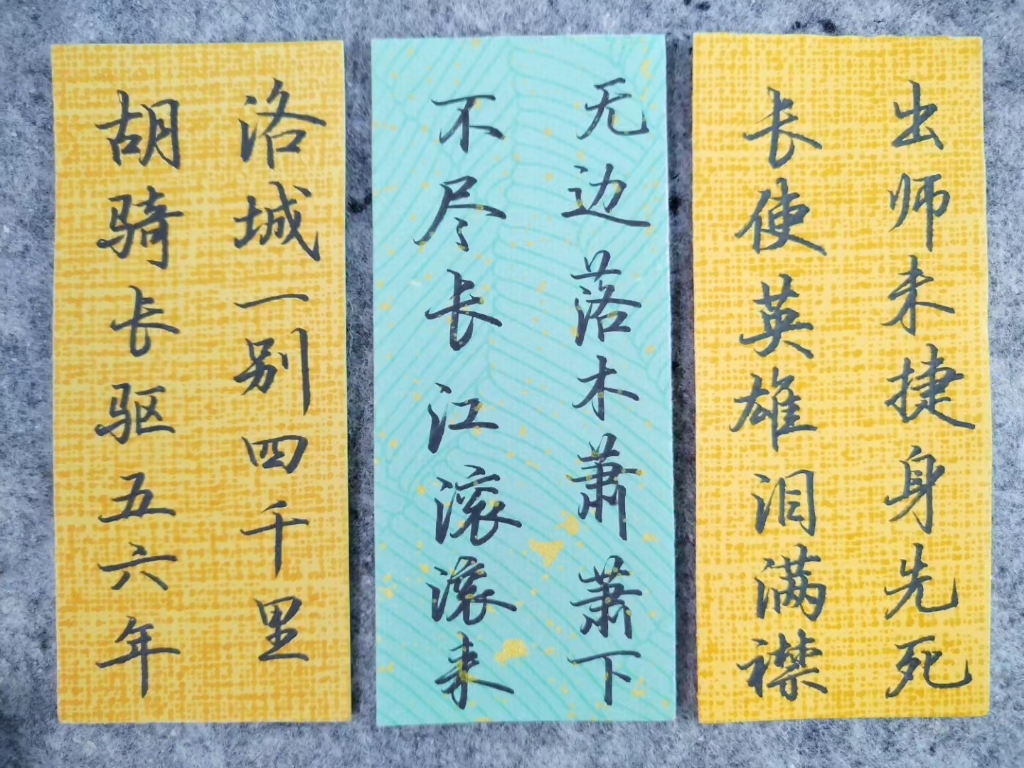 出师未捷身先死
长使英雄泪满襟
无边落木萧萧下
不尽长江滚滚来
洛城一别四千里
胡骑长驱五六年